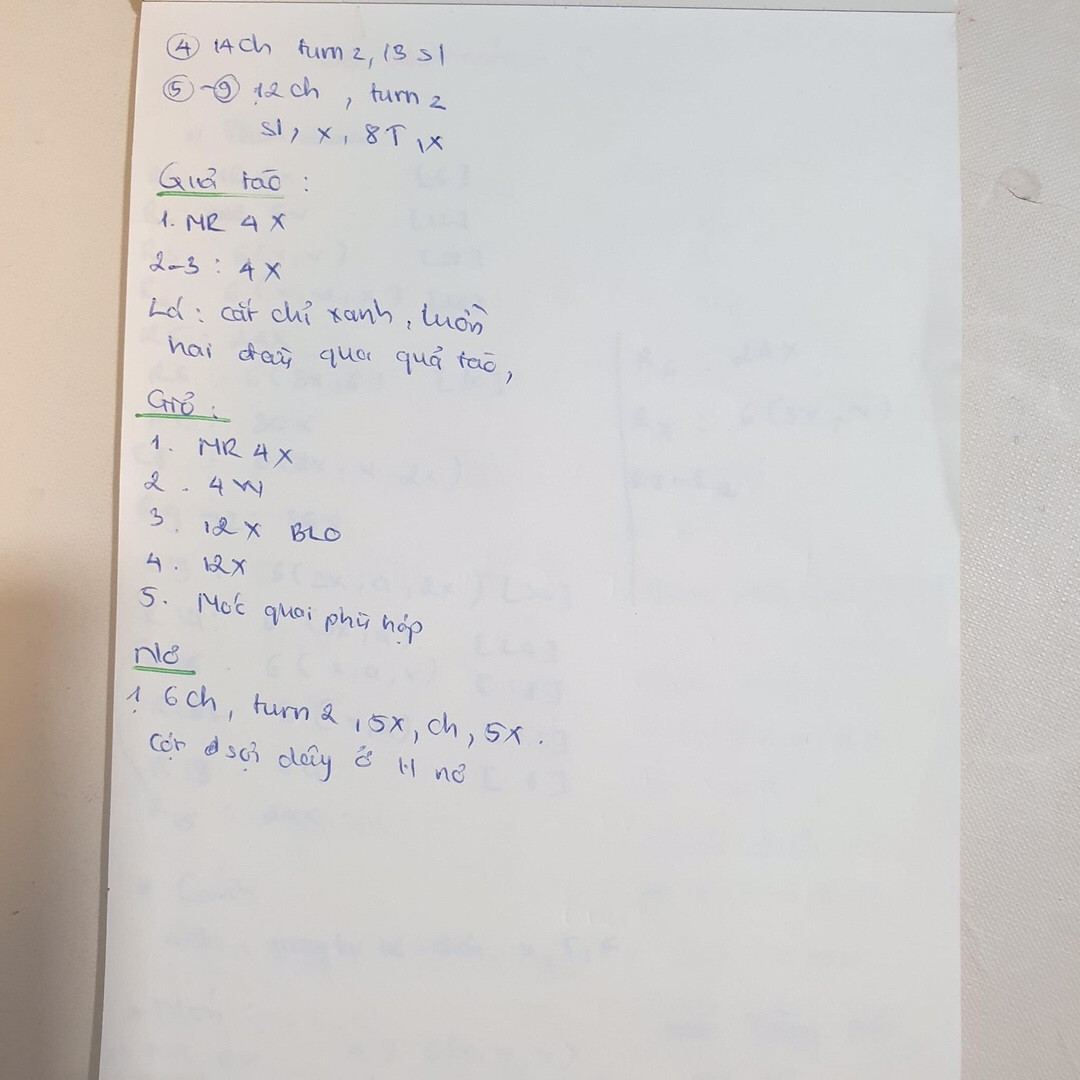 ④ 14ch turn 2, 13 sl
⑤-⑨ 12ch, turn 2
sl, x, 8T, x
Quả táo:
1. MR 4X
2-3: 4X
Lá: cắt chỉ xanh, luồn
hai đầu qua quả táo,
Giỏ:
1. MR 4X
2. 4W
3. 12X BLO
4. 12X
5. Móc quai phù hợp
Nơ
1. 6ch, turn 2, 5x, ch, 5x.
sợi dây ở nơ